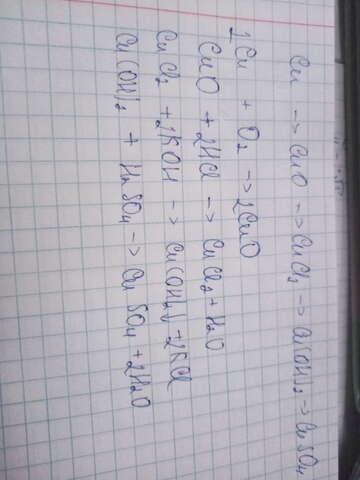 Cu -> CuO -> CuCl2 -> Cu(OH)2 -> CuSO4
2Cu + O2 -> 2CuO
CuO + 2HCl -> CuCl2 + H2O
CuCl2 + 2KOH -> Cu(OH2) + 2KCl
Cu(OH)2 + H2SO4 -> CuSO4 + 2H2O